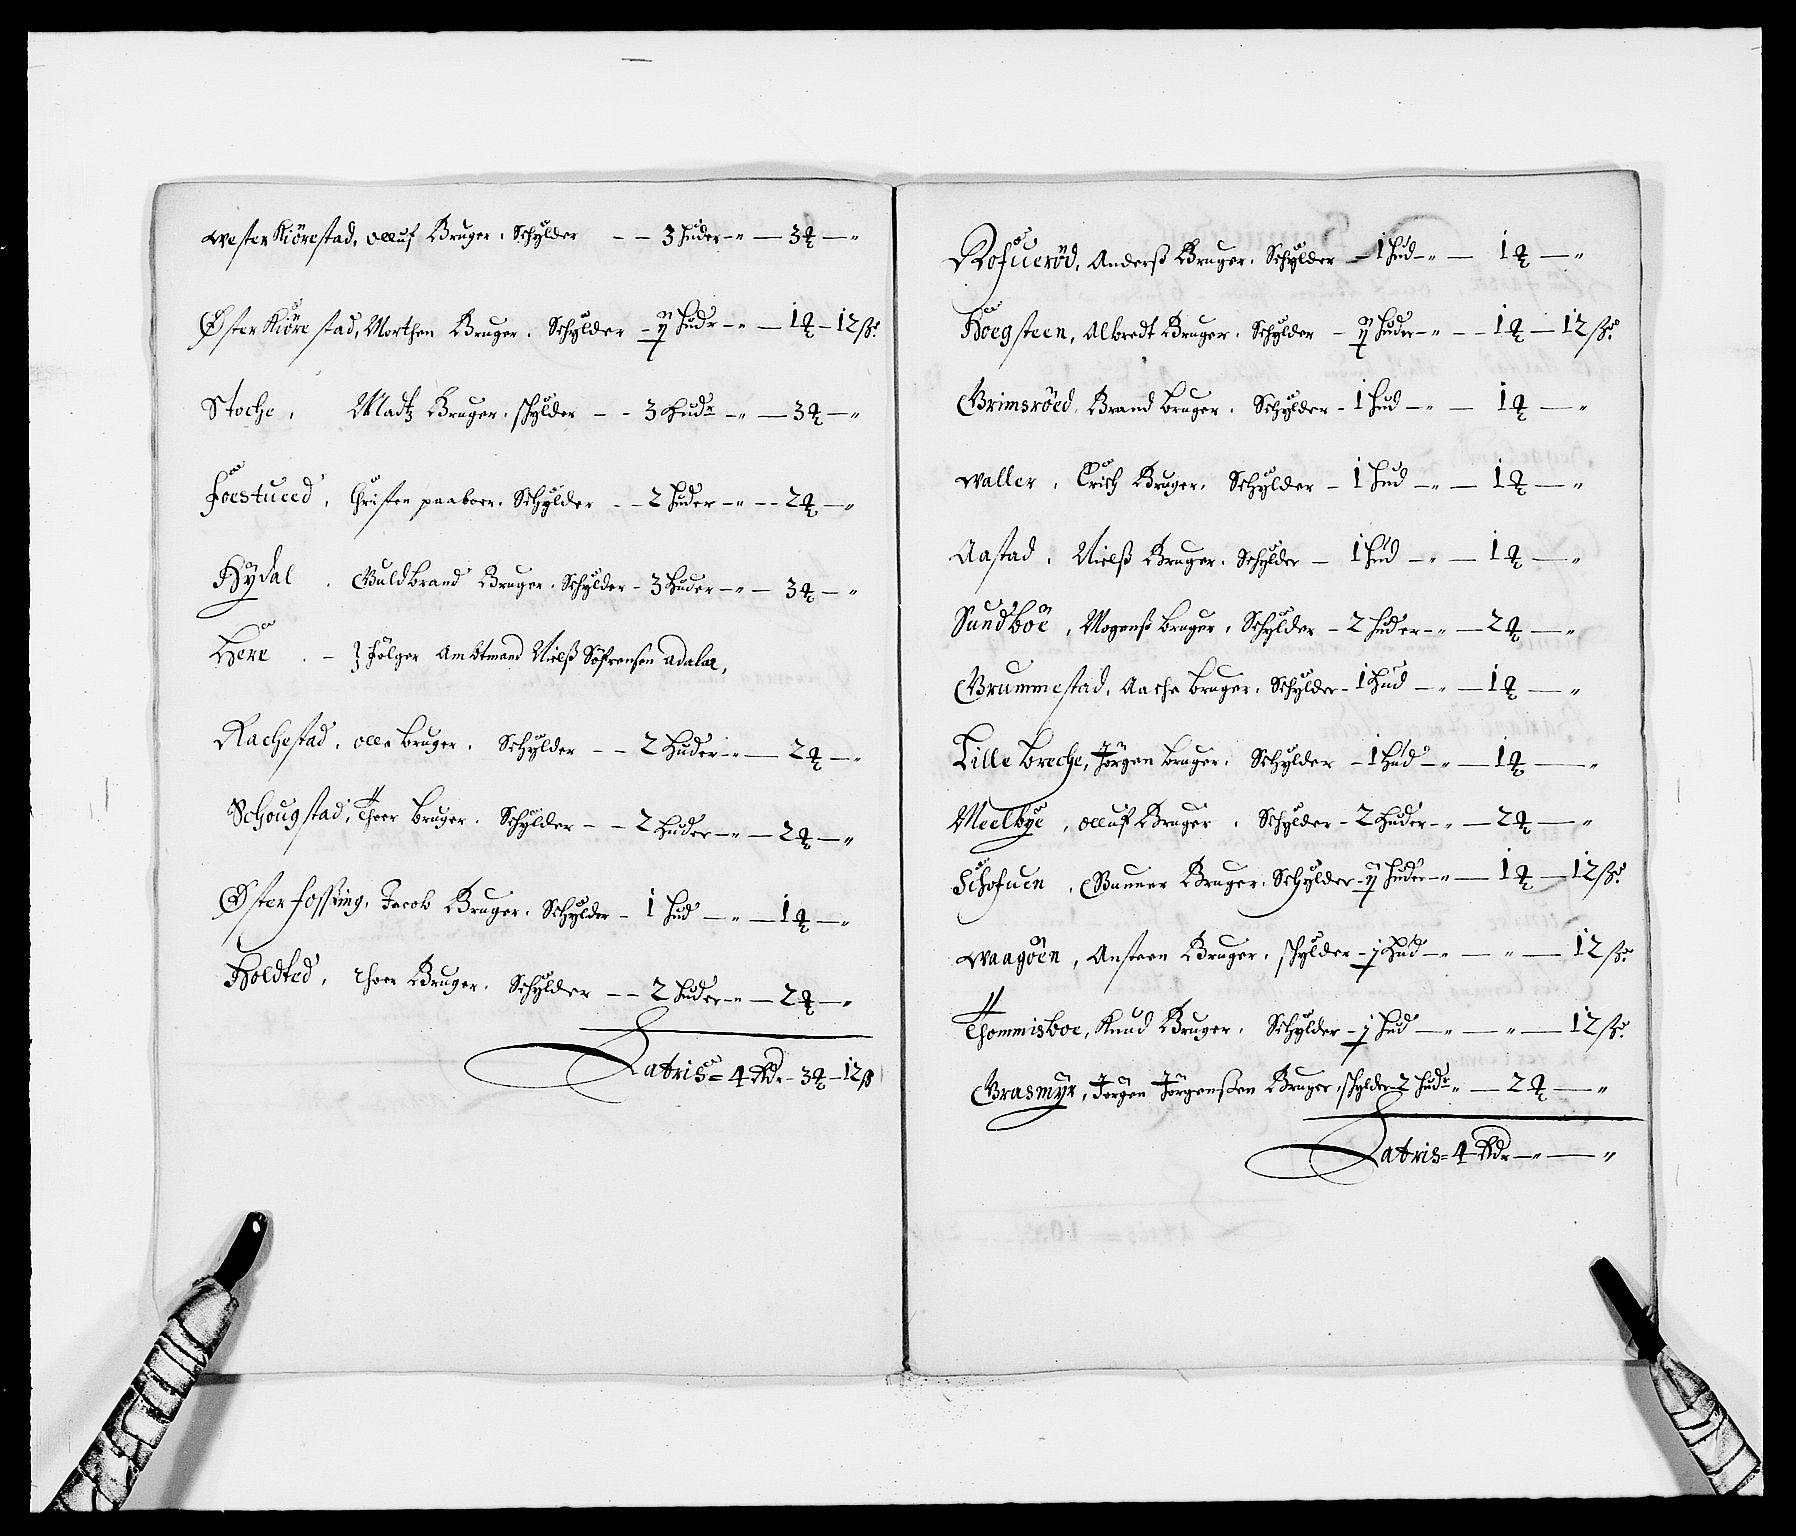 Wester Kiörestad, Olluf Bruger, Schylder – – 3 Huder – „ – 3 ₰ – „
Øster Kiörestad, Morthen Bruger, Schylder – ɉ Hudr – „ – 1 ₰ – 12 ß.
Stoche, Madtz Bruger, schylder – – 3 Hudr – „ – 3 ₰ – „
Foestued, Christen paaboer, Schylder – – 2 Huder – „ – – 2 ₰ – „
Hÿdal, Guldbrand Bruger, Schylder – 3 Huder – „ – 3 ₰ – „
Here – fölger Ambtmand Nielß Söfrensen Adalar,
Rachestad, Olle bruger, Schylder – – 2 Huder – „ – 2 ₰ – „
Schougstad, Thoer Bruger, Schylder – – 2 Huder – „ – 2 ₰ – „
Øster Fossing, Jacob Bruger, Schylder – 1 Hud – „ – 1 ₰ – „
Holdted, Thoer Bruger, Schylder – – 2 Huder – „ – 2 ₰ – „
Latris = 4 Rdr – 3 ₰ – 12 ß
Rofueröd, Anderß Bruger, Schylder – 1 Hud – „ – 1 ₰ – „
Höegsteen, Albredt Bruger, Schylder – ɉ Huder – „ – – 1 ₰ – 12 ß.
Grimsröed, Brand bruger, Schylder – 1 Hud – „ – 1 ₰ – „
Waller, Erich Bruger, Schylder – 1 Hud – „ – 1 ₰ – „
Aastad, Nielß Bruger, Schylder – 1 Hud – „ – 1 ₰ – „
Sundböe, Mogenß bruger, Schylder – 2 Huder – „ – 2 ₰ – „
Grummestad, Aache bruger, Schylder – 1 Hud – „ – 1 ₰ – „
Lille Breche, Jörgen bruger, Schylder – 1 Hud – „ – 1 ₰ – „
Meelbÿe, Olluf Bruger, Schylder – 2 Huder – „ – 2 ₰ – „
Schofuen, Gunner Bruger, Schylder – ɉ Huder – „ – 1 ₰ – 12 ß.
Waagöen, Ansteen Bruger, schylder – ɉ Hud – „ – „ – 12 ß.
Thommisboe, Knud Bruger, Schylder – ɉ Hud – „ – „ – 12 ß.
Grasmÿr, Jörgen Jörgenßen Bruger, schylder 2 Hudr „ – 2 ₰ – „
Latris = 4 Rdr – „ – „